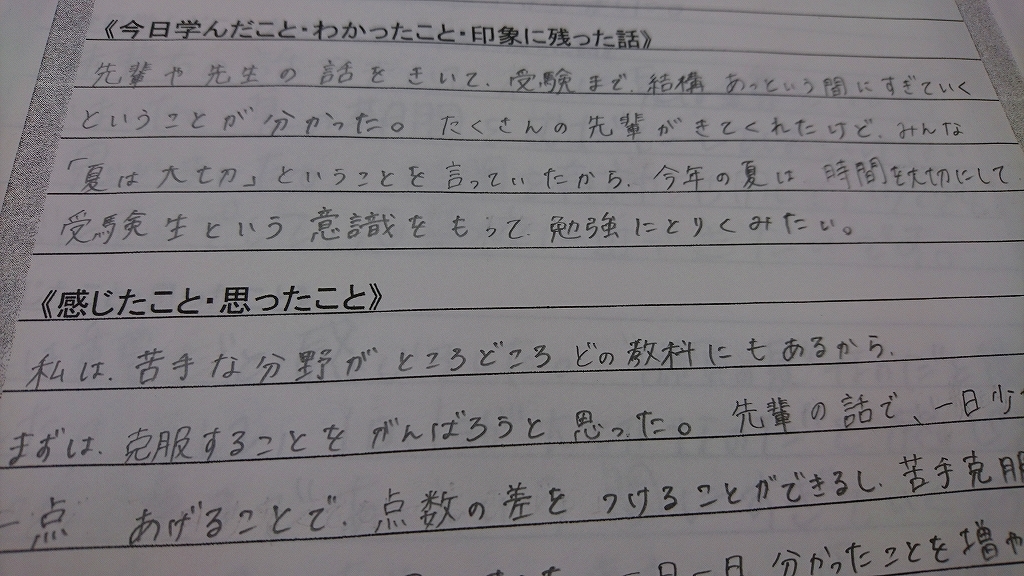 《今日学んだこと・わかったこと・印象に残った話》
先輩や先生の話をきいて、受験まで、結構あっという間にすぎていく
ということが分かった。たくさんの先輩がきてくれたけど、みんな
「夏は大切」ということを言っていたから、今年の夏は、時間を大切にして
受験生という意識をもって、勉強にとりくみたい。
《感じたこと・思ったこと》
私は、苦手な分野がところどころどの教科にもあるから、
まずは、克服することをがんばろうと思った。先輩の話で、一日少
一点 あげることで、点数の差をつけることができるし、苦手克服
一日一日 分かったことを増や